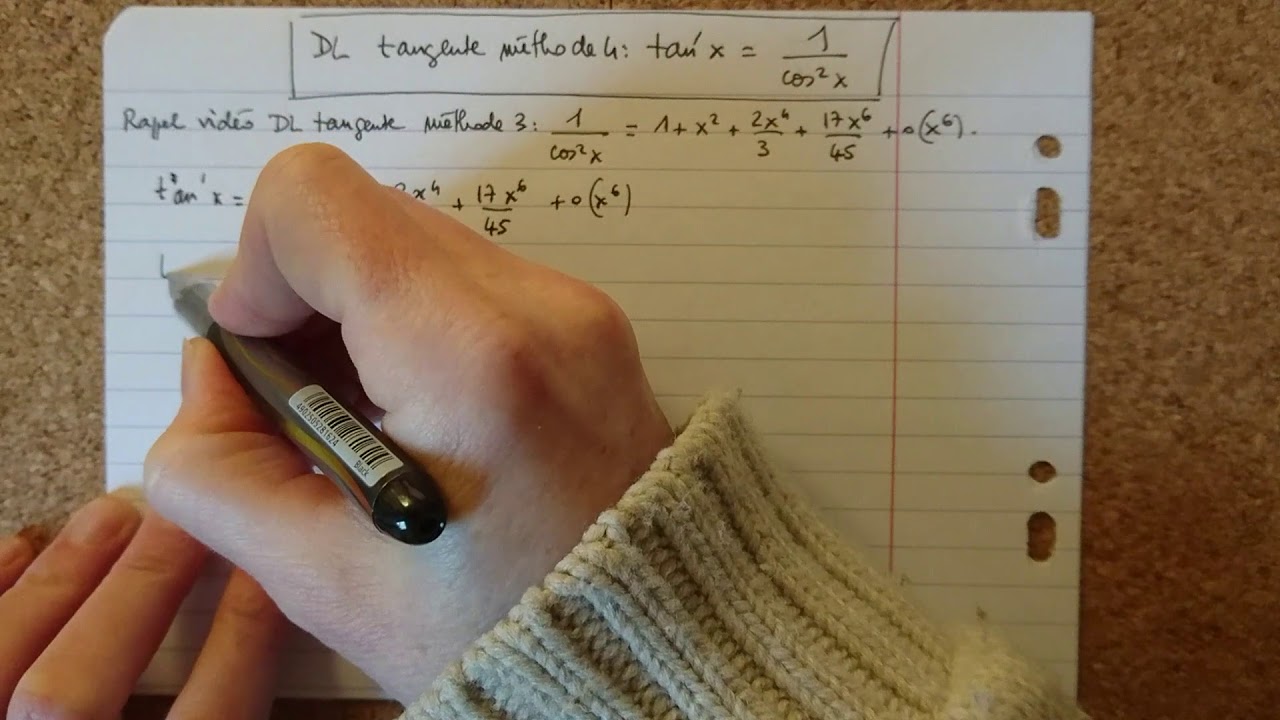 DL tangente méthode 4: tan'x = 1/cos²x
Rapel vidéo DL tangente méthode 3: 1/cos²x = 1 + x² + 2x⁴/3 + 17x⁶/45 + o(x⁶).
tan'x = x⁴ + 17x⁶/45 + o(x⁶)
4902505281624
Black